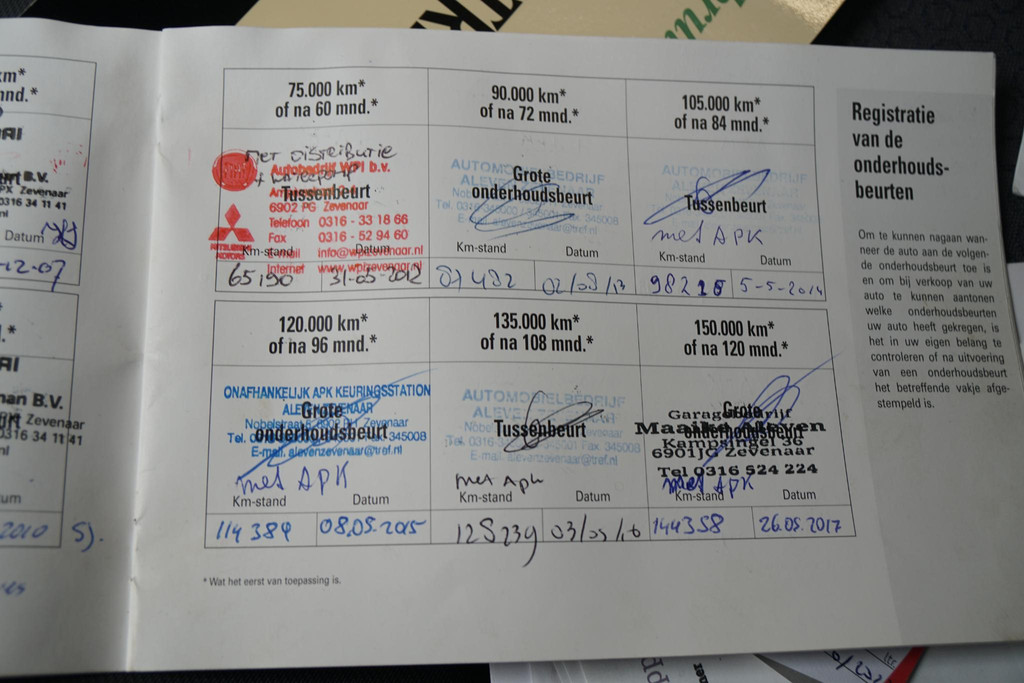 75.000 km*
of na 60 mnd.*
90.000 km*
of na 72 mnd.*
105.000 km*
of na 84 mnd.*
met distributie
+ waterpomp
Autobedrijf WPI b.v.
Tussenbeurt
6902 PG Zevenaar
Telefoon 0316 - 33 18 66
Fax 0316 - 52 94 60
E-mail info@wpizevenaar.nl
Internet www.wpizevenaar.nl
Km-stand Datum
65190 31-05-2012
AUTOMOBIELBEDRIJF
ALEVEN ZEVENAAR
Grote
onderhoudsbeurt
Km-stand Datum
87482 02/08/13
AUTOMOBIELBEDRIJF
Tussenbeurt
met APK
Km-stand Datum
98218 5-5-2014
120.000 km*
of na 96 mnd.*
135.000 km*
of na 108 mnd.*
150.000 km*
of na 120 mnd.*
ONAFHANKELIJK APK KEURINGSSTATION
ALEVEN ZEVENAAR
Grote
onderhoudsbeurt
Zevenaar
Fax 0316-345008
E-mail. alevenzevenaar@tref.nl
met APK
Km-stand Datum
114384 08.05.2015
AUTOMOBIELBEDRIJF
ALEVEN ZEVENAAR
Tussenbeurt
E-mail. alevenzevenaar@tref.nl
met Apk
Km-stand Datum
125239 03/05/16
Garagebedrijf
Maaike Aleven
Grote
onderhoudsbeurt
Kampsingel 36
6901JG Zevenaar
Tel 0316 524 224
met APK
Km-stand Datum
144358 26.05.2017
* Wat het eerst van toepassing is.
Registratie
van de
onderhouds-
beurten
Om te kunnen nagaan wan-
neer de auto aan de volgen-
de onderhoudsbeurt toe is
en om bij verkoop van uw
auto te kunnen aantonen
welke onderhoudsbeurten
uw auto heeft gekregen, is
het in uw eigen belang te
controleren of na uitvoering
van een onderhoudsbeurt
het betreffende vakje afge-
stempeld is.
km*
mnd.*
Zevenaar
0316 34 11 41
Datum
-12-07
B.V.
Zevenaar
0316 34 11 41
2010
5).